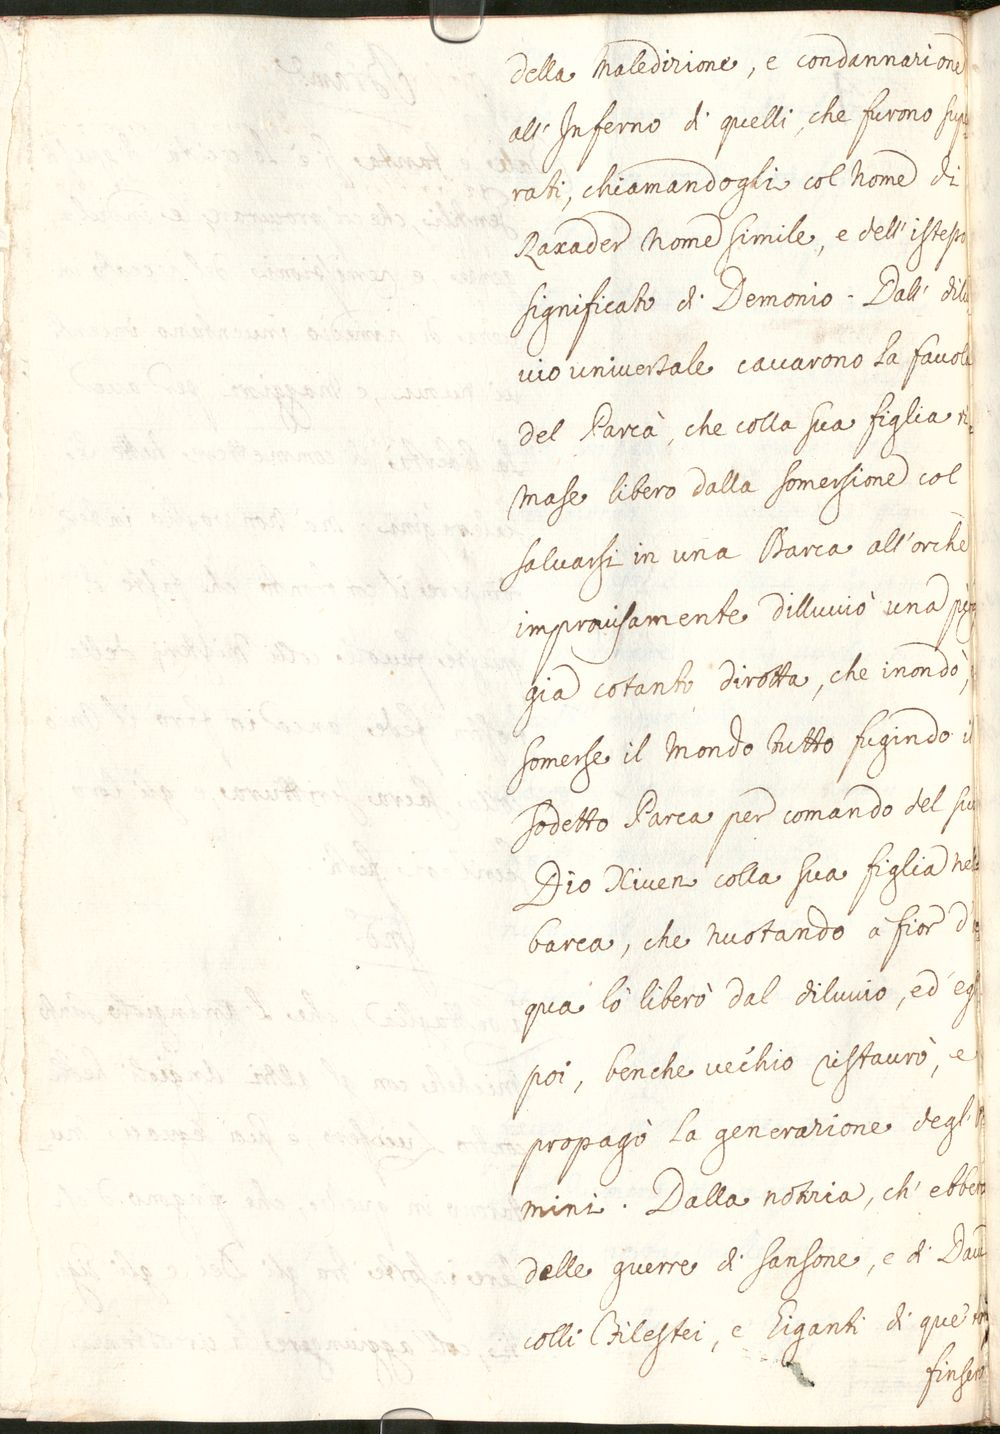 della Maledizione, e condannazione
all' Inferno di quelli, che furono supe
rati, chiamandogli col nome di
Raxader nome simile, e dell' istesso
significato di Demonio. Dall' dilu
uio uniuersale cauarono la fauola
del Parcà, che colla sua figlia ri=
mase libero dalla somersione col
saluarsi in una Barca all'orchè
improuisamente dilluuiò una piog
gia cotanto dirotta, che inondò,
somerse il Mondo tutto fugindo il
sodetto Parca per comando del suo
Dio Xiuen colla sua figlia nella
barca, che nuotando a fior d'ac=
qua lò liberò dal diluuio, ed egli
poi, benche uechio ristaurò, e
propagò la generazione degl'
mini. Dalla notizia, ch' ebbero
delle guerre di Sansone, e di Dauid
colli Filestei, e Giganti di que
finsero